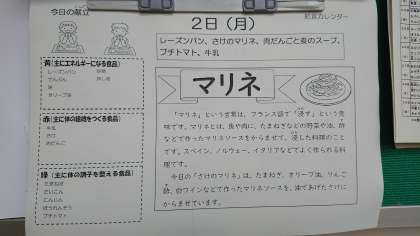 今日の献立
2日（月）
給食カレンダー
レーズンパン、さけのマリネ、肉だんごと麦のスープ、
プチトマト、牛乳
黄（主にエネルギーになる食品）
レーズンパン
でんぷん
油
オリーブ油
砂糖
押し麦
赤（主に体の組織をつくる食品）
牛乳
さけ
肉だんご
緑（主に体の調子を整える食品）
たまねぎ
だいこん
にんじん
ほうれんそう
プチトマト
マリネ
「マリネ」という言葉は、フランス語で「浸す」という意
味です。マリネとは、魚や肉に、たまねぎなどの野菜や油、酢
などで作ったマリネソースをからませて、浸した料理のこと
です。スペイン、ノルウェー、イタリアなどでよく作られる料
理です。
今日の「さけのマリネ」は、たまねぎ、オリーブ油、りんご
酢、白ワインなどで作ったマリネソースを、油であげたさけに
からませています。